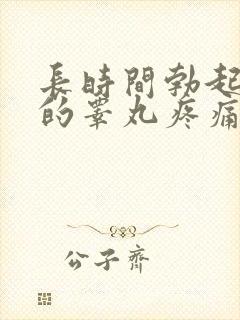 長時間勃起
的睪丸疼痛
公子齊